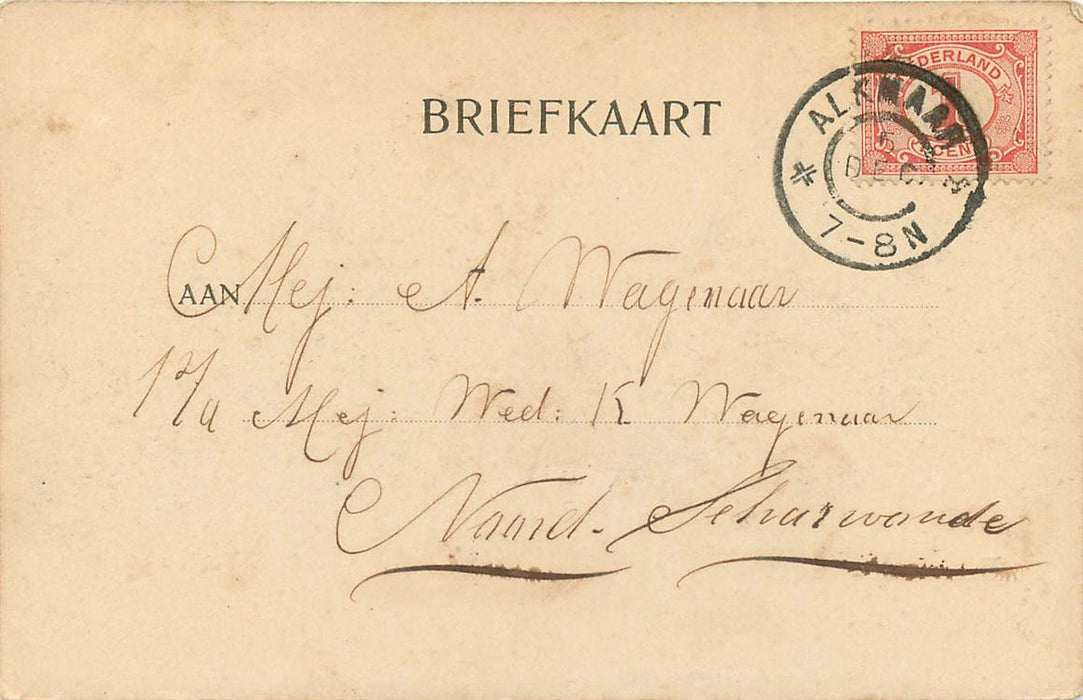 BRIEFKAART
NEDERLAND
1
CENT
ALKMAAR
5
DEC
7-8N
AAN Mej: A. Wagenaar
P/a Mej: Wed: K Wagenaar
Noord-Scharwoude